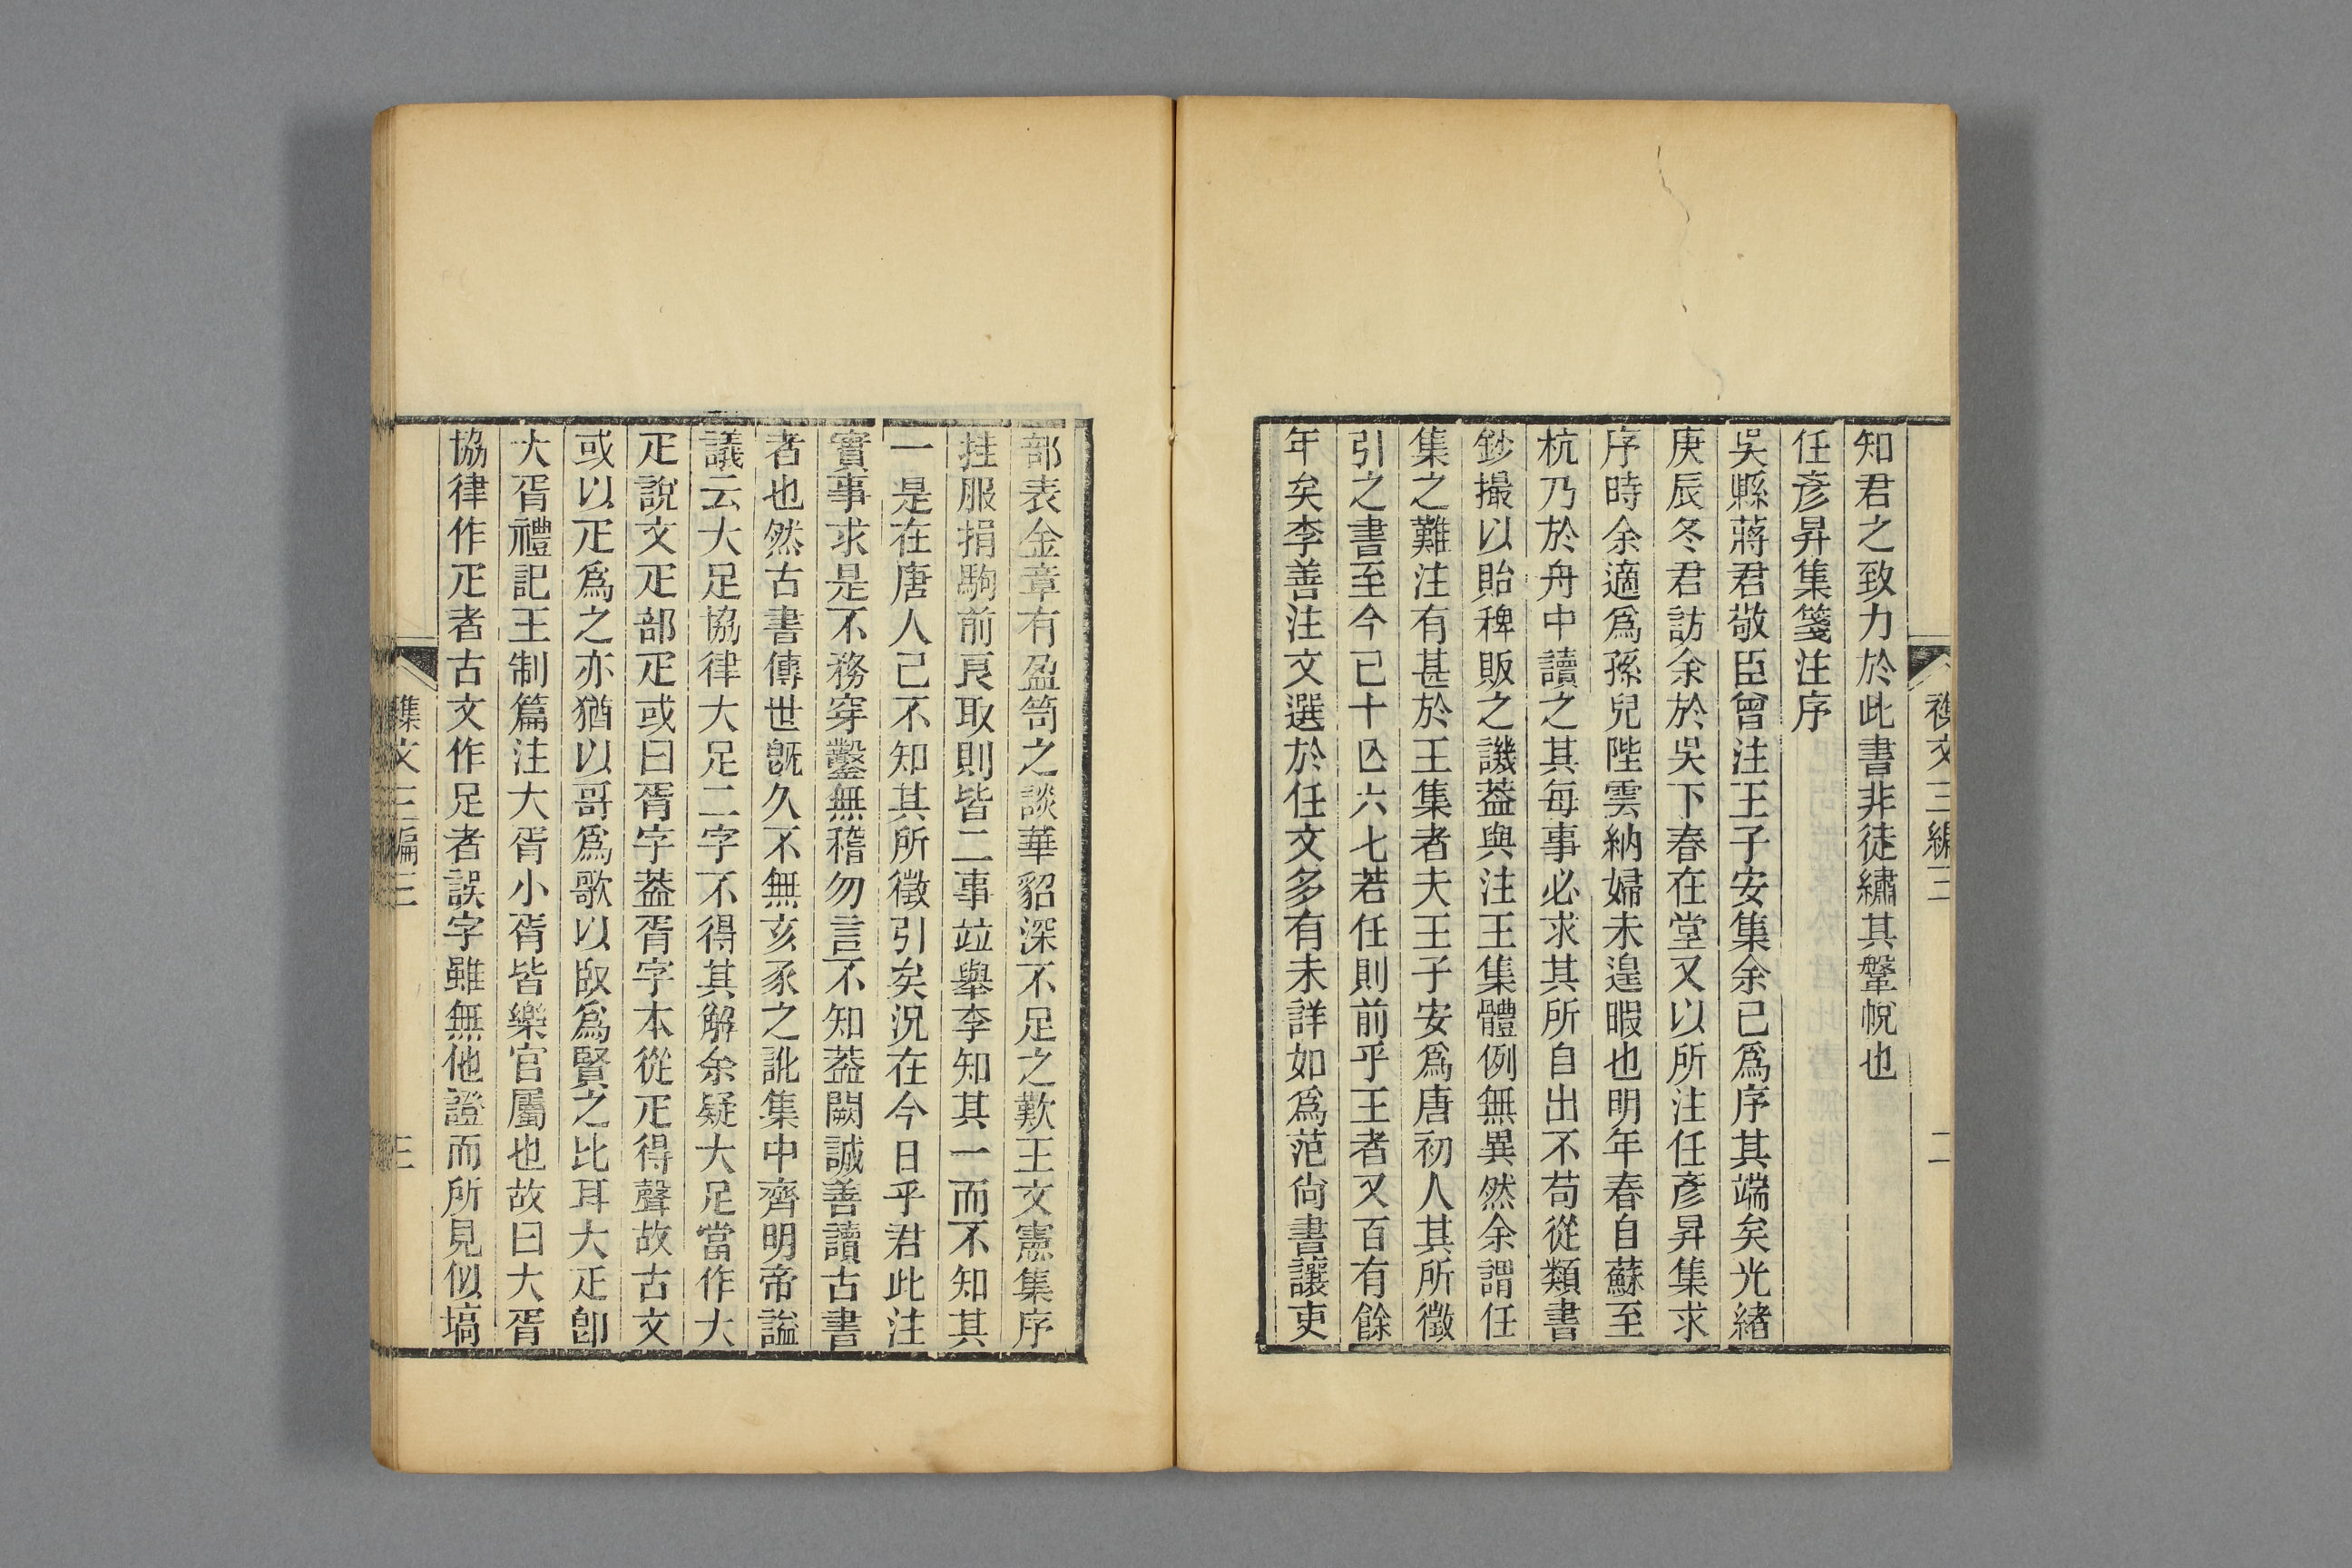 襍文三編三
二
知君之致力於此書非徒繡其鞶帨也
任彥昇集箋注序
吳縣蔣君敬臣曾注王子安集余已爲序其端矣光緒
庚辰冬君訪余於吳下春在堂又以所注任彥昇集求
序時余適爲孫兒陛雲納婦未遑暇也明年春自蘇至
杭乃於舟中讀之其每事必求其所自出不苟從類書
鈔撮以貽稗販之譏葢與注王集體例無異然余謂任
集之難注有甚於王集者夫王子安爲唐初人其所徵
引之書至今已十亾六七若任則前乎王者又百有餘
年矣李善注文選於任文多有未詳如爲范尙書讓吏
部表金章有盈笥之談華貂深不足之歎王文憲集序
挂服捐駒前良取則皆二事竝舉李知其一而不知其
一是在唐人已不知其所徵引矣況在今日乎君此注
實事求是不務穿鑿無稽勿言不知葢闕誠善讀古書
者也然古書傳世旣久不無亥豕之訛集中齊明帝謚
議云大足協律大足二字不得其解余疑大足當作大
疋說文疋部疋或曰胥字葢胥字本從疋得聲故古文
或以疋爲之亦猶以哥爲歌以臤爲賢之比耳大疋卽
大胥禮記王制篇注大胥小胥皆樂官屬也故曰大胥
協律作疋者古文作足者誤字雖無他證而所見似塙
襍文三編三
三